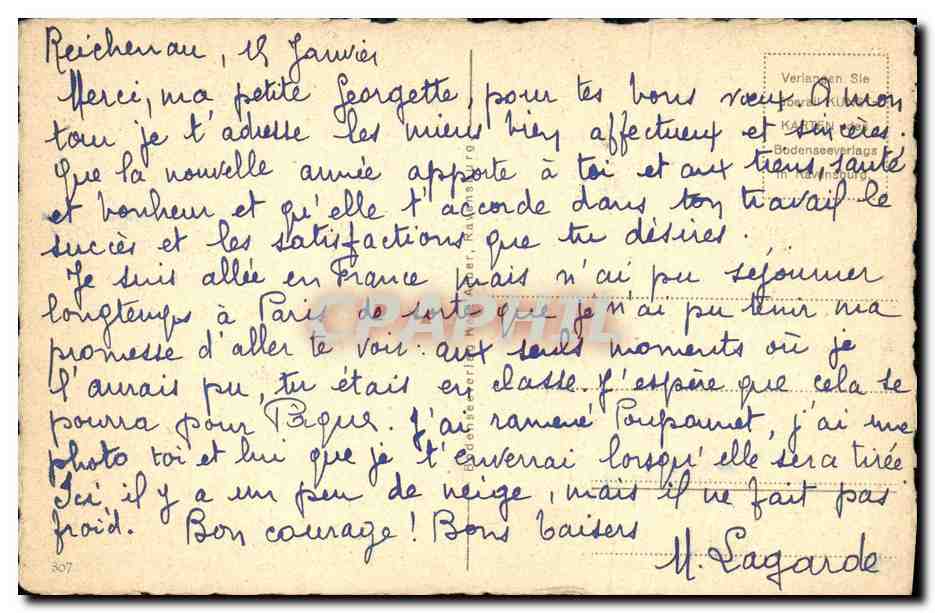 Reichenau, 15 Janvier
Merci, ma petite Georgette, pour tes bons vœux. A mon
tour je t'adresse les miens bien affectueux et sincères.
Que la nouvelle année apporte à toi et aux tiens, santé
et bonheur et qu'elle t'accorde dans ton travail le
succès et les satisfactions que tu désires.
Je suis allée en France mais n'ai pu séjourner
longtemps à Paris de sorte que je n'ai pu tenir ma
promesse d'aller te voir : aux seuls moments où je
l'aurais pu, tu étais en classe. J'espère que cela se
pourra pour Pâques. J'ai ramené Poupounet, j'ai une
photo toi et lui que je t'enverrai lorsqu'elle sera tirée.
Ici, il y a un peu de neige, mais il ne fait pas
froid. Bon courage ! Bons baisers
M. Lagarde
307
Verlangen Sie
überall KUNST-
KARTEN des
Bodenseeverlags
in Ravensburg
Bodenseeverlag Ravensburg
CPAPHIL